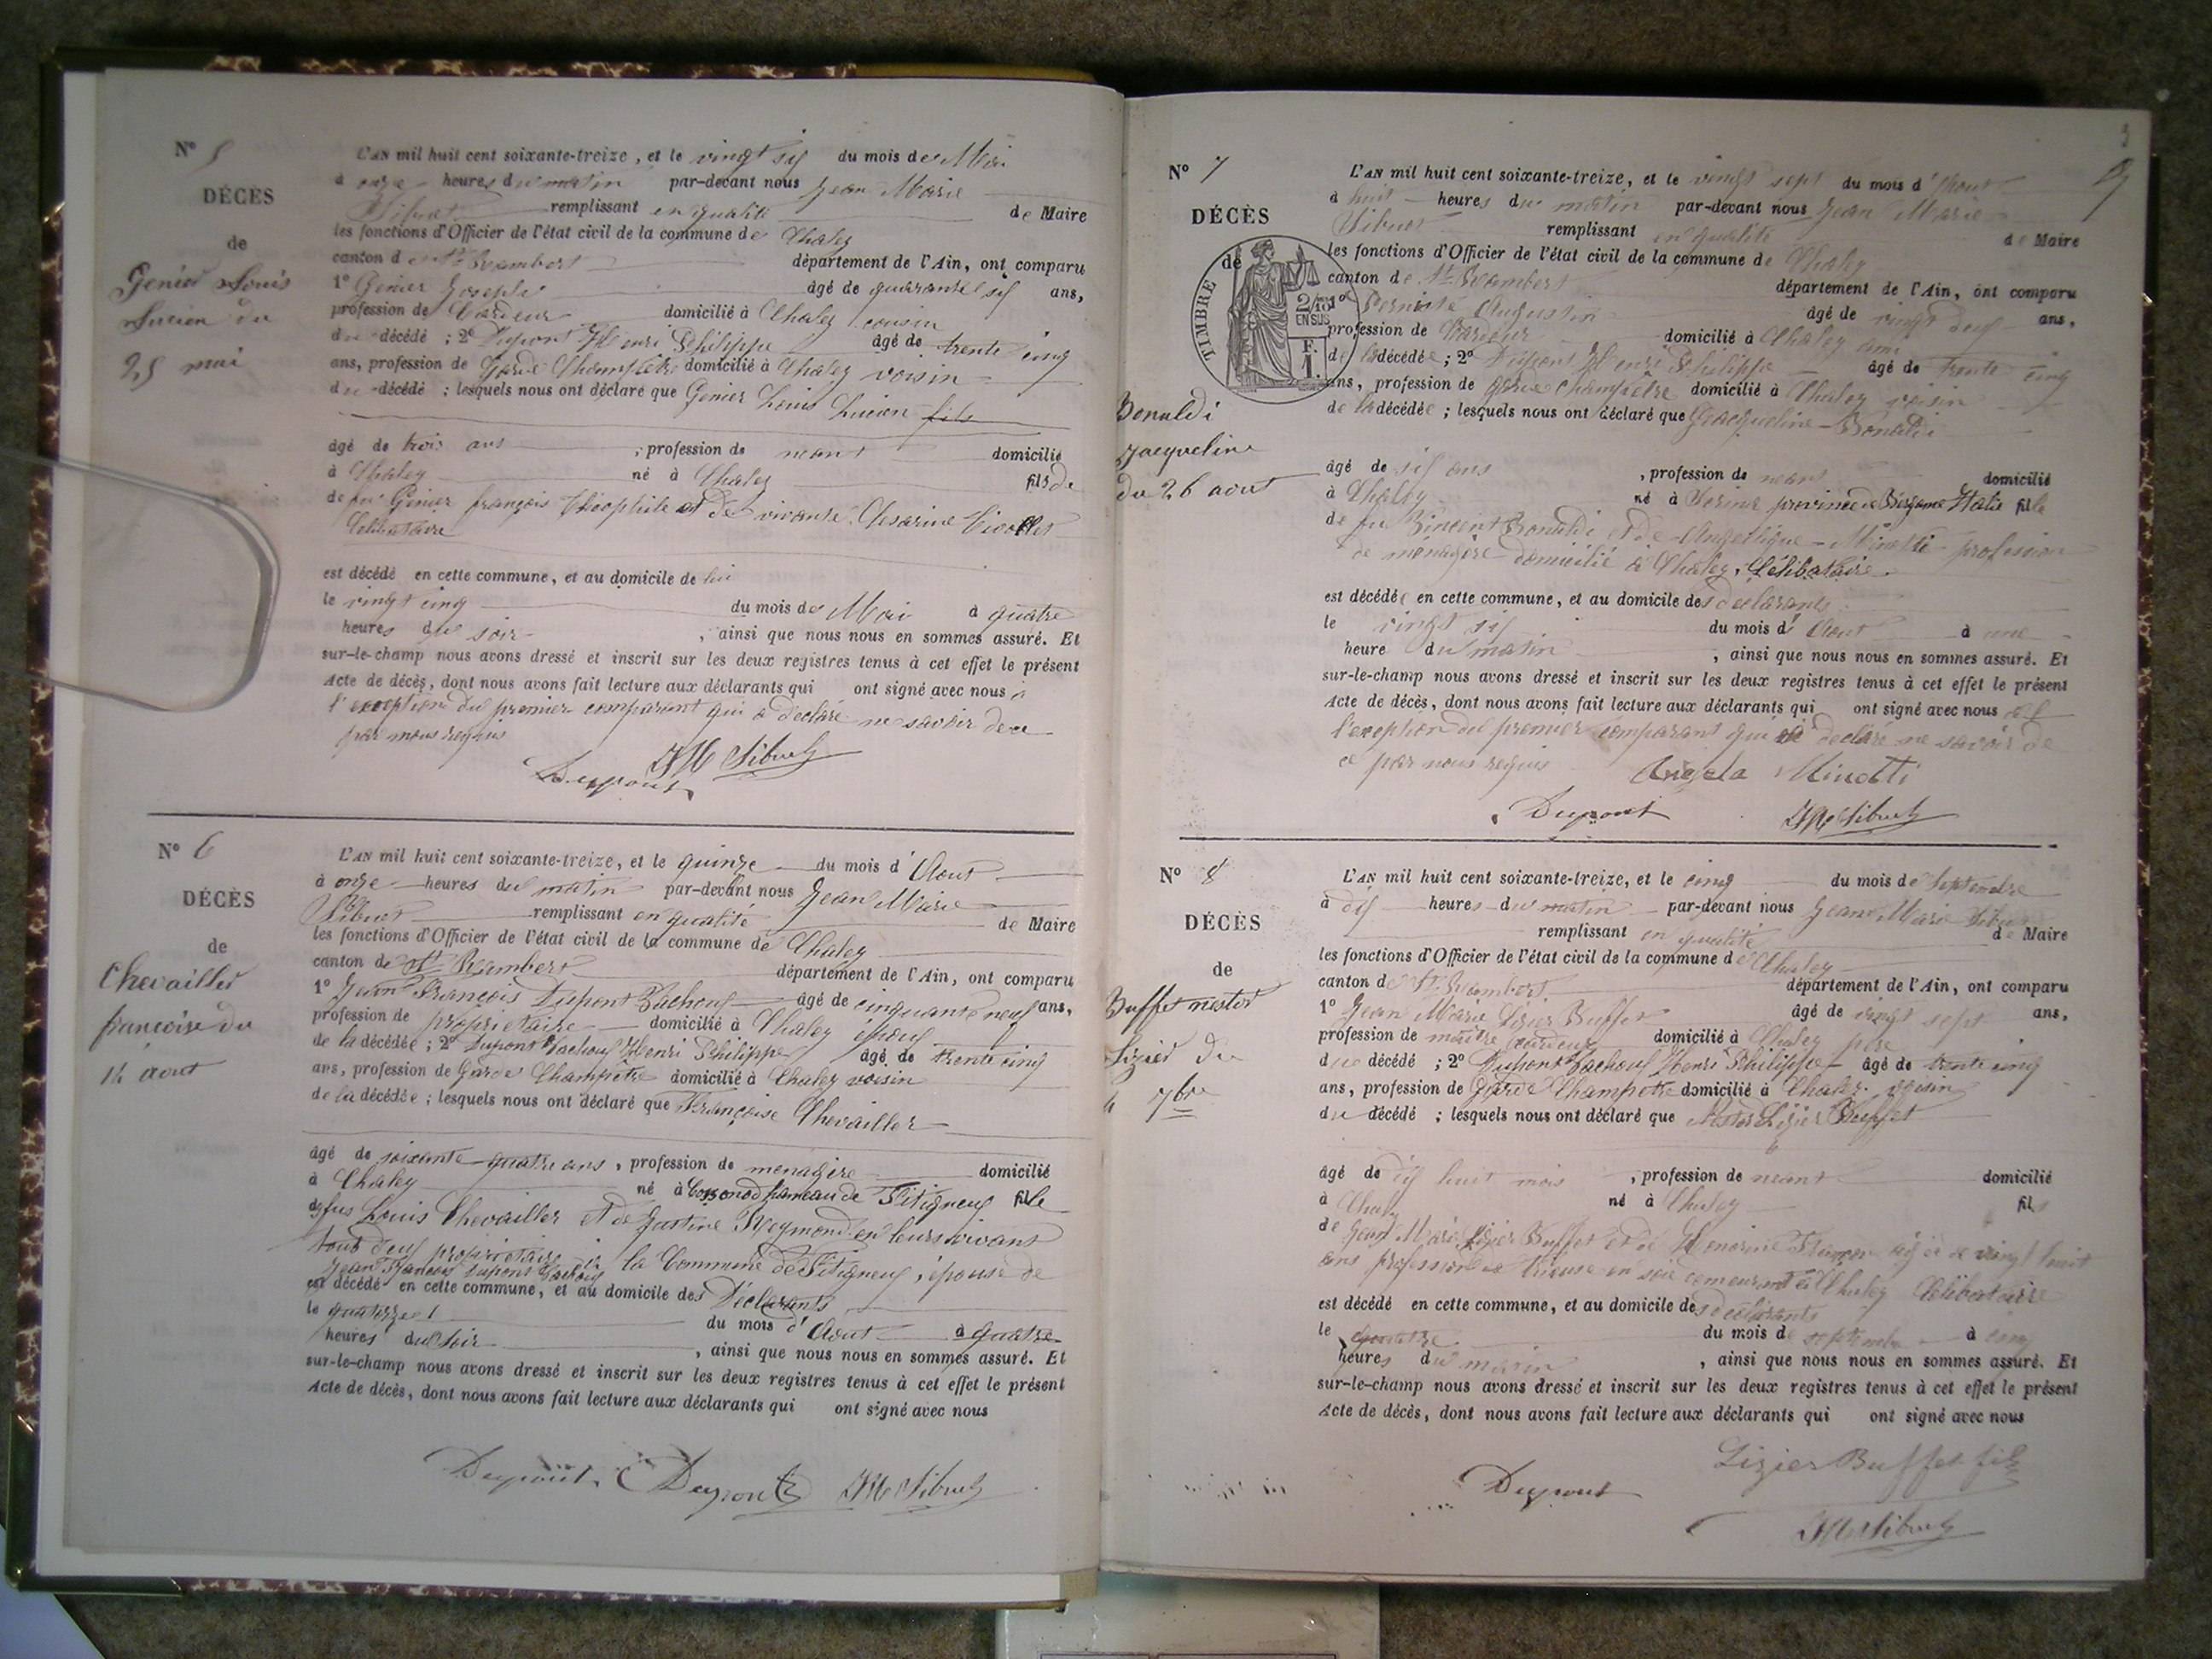 N° 5
DÉCÈS
de
Genier Louis
Lucien du
25 mai
L'AN mil huit cent soixante-treize, et le vingt six du mois de Mai
à onze heures du matin par-devant nous Jean Marie
Sibuet remplissant en qualité de Maire
les fonctions d'Officier de l'état civil de la commune de Chaley
canton de St Rambert département de l'Ain, ont comparu
1° Genier Joseph âgé de quarante six ans,
profession de Cardeur domicilié à Chaley cousin
du décédé ; 2° Dupont Henri Philippe âgé de trente cinq
ans, profession de Garde Champêtre domicilié à Chaley voisin
du décédé ; lesquels nous ont déclaré que Genier Louis Lucien fils
âgé de trois ans , profession de neant domicilié
à Chaley né à Chaley fils de
de feu Genier françois théophile et de vivante Cesarine
Célibataire
est décédé en cette commune, et au domicile de lui
le vingt cinq du mois de Mai à quatre
heures du soir , ainsi que nous nous en sommes assuré. Et
sur-le-champ nous avons dressé et inscrit sur les deux registres tenus à cet effet le présent
Acte de décès, dont nous avons fait lecture aux déclarants qui ont signé avec nous à
l'exception du premier comparant qui a déclaré ne savoir de ce
par nous requis
JM Sibuet
Dupont
N° 6
DÉCÈS
de
Chevailler
françoise du
14 aout
L'AN mil huit cent soixante-treize, et le quinze du mois d'Aout
à onze heures du matin par-devant nous Jean Marie
Sibuet remplissant en qualité de Maire
les fonctions d'Officier de l'état civil de la commune de Chaley
canton de St Rambert département de l'Ain, ont comparu
1° Jean François Dupont Bachoux âgé de cinquante neuf ans,
profession de propriétaire domicilié à Chaley époux
de la décédée ; 2° Dupont Bachoux Henri Philippe âgé de trente cinq
ans, profession de Garde Champêtre domicilié à Chaley voisin
de la décédée ; lesquels nous ont déclaré que Françoise Chevailler
âgé de soixante quatre ans , profession de menagère domicilié
à Chaley né à hameau de Vitigneux fille
de feus Louis Chevailler et de Justine Reymond en leurs vivant
tous deux propriétaire la Commune de Vitigneux, épouse de
Jean François Dupont Bachoux
est décédé en cette commune, et au domicile des Déclarants
le quatorze du mois d'Aout à quatre
heures du soir , ainsi que nous nous en sommes assuré. Et
sur-le-champ nous avons dressé et inscrit sur les deux registres tenus à cet effet le présent
Acte de décès, dont nous avons fait lecture aux déclarants qui ont signé avec nous
Dupont Dupont JM Sibuet
3
N° 7
DÉCÈS
de
TIMBRE
2/10
EN SUS
F.
1.
Bonaldi
Jacqueline
du 26 aout
L'AN mil huit cent soixante-treize, et le vingt sept du mois d'Aout
à huit heures du matin par-devant nous Jean Marie
Sibuet remplissant en qualité de Maire
les fonctions d'Officier de l'état civil de la commune de Chaley
canton de St Rambert département de l'Ain, ont comparu
1° Augustin âgé de vingt deux ans,
profession de Cardeur domicilié à Chaley ami
de la décédée ; 2° Dupont Henri Philippe âgé de trente cinq
ans, profession de garde champêtre domicilié à Chaley voisin
de la décédée ; lesquels nous ont déclaré que Jacqueline Bonaldi
âgé de six ans , profession de neant domicilié
à Chaley né à Serina province de Bergame Italie fille
de feu Vincent Bonaldi et de Angelique Minotti profession
de menagère domicilié à Chaley, Célibataire
est décédée en cette commune, et au domicile des déclarants
le vingt six du mois d'Aout à une
heure du matin , ainsi que nous nous en sommes assuré. Et
sur-le-champ nous avons dressé et inscrit sur les deux registres tenus à cet effet le présent
Acte de décès, dont nous avons fait lecture aux déclarants qui ont signé avec nous
l'exception du premier comparant qui a déclaré ne savoir de
ce par nous requis Angela Minotti
Dupont JM Sibuet
N° 8
DÉCÈS
de
Buffet nestor
Lizier du
4 7bre
L'AN mil huit cent soixante-treize, et le cinq du mois de Septembre
à dix heures du matin par-devant nous Jean Marie Sibuet
remplissant en qualité de Maire
les fonctions d'Officier de l'état civil de la commune de Chaley
canton de St Rambert département de l'Ain, ont comparu
1° Jean Marie Lizier Buffet âgé de vingt sept ans,
profession de maître cardeur domicilié à Chaley père
du décédé ; 2° Dupont Bachoux Henri Philippe âgé de trente cinq
ans, profession de Garde Champêtre domicilié à Chaley voisin
du décédé ; lesquels nous ont déclaré que Nestor Lizier Buffet
âgé de dix huit mois , profession de neant domicilié
à Chaley né à Chaley fils
de Jean Marie Lizier Buffet et de Honorine agée de vingt huit
ans profession de en soie demeurant à Chaley Célibataire
est décédé en cette commune, et au domicile des déclarants
le quatre du mois de septembre à cinq
heures du matin , ainsi que nous nous en sommes assuré. Et
sur-le-champ nous avons dressé et inscrit sur les deux registres tenus à cet effet le présent
Acte de décès, dont nous avons fait lecture aux déclarants qui ont signé avec nous
Lizier Buffet fils
Dupont
JM Sibuet